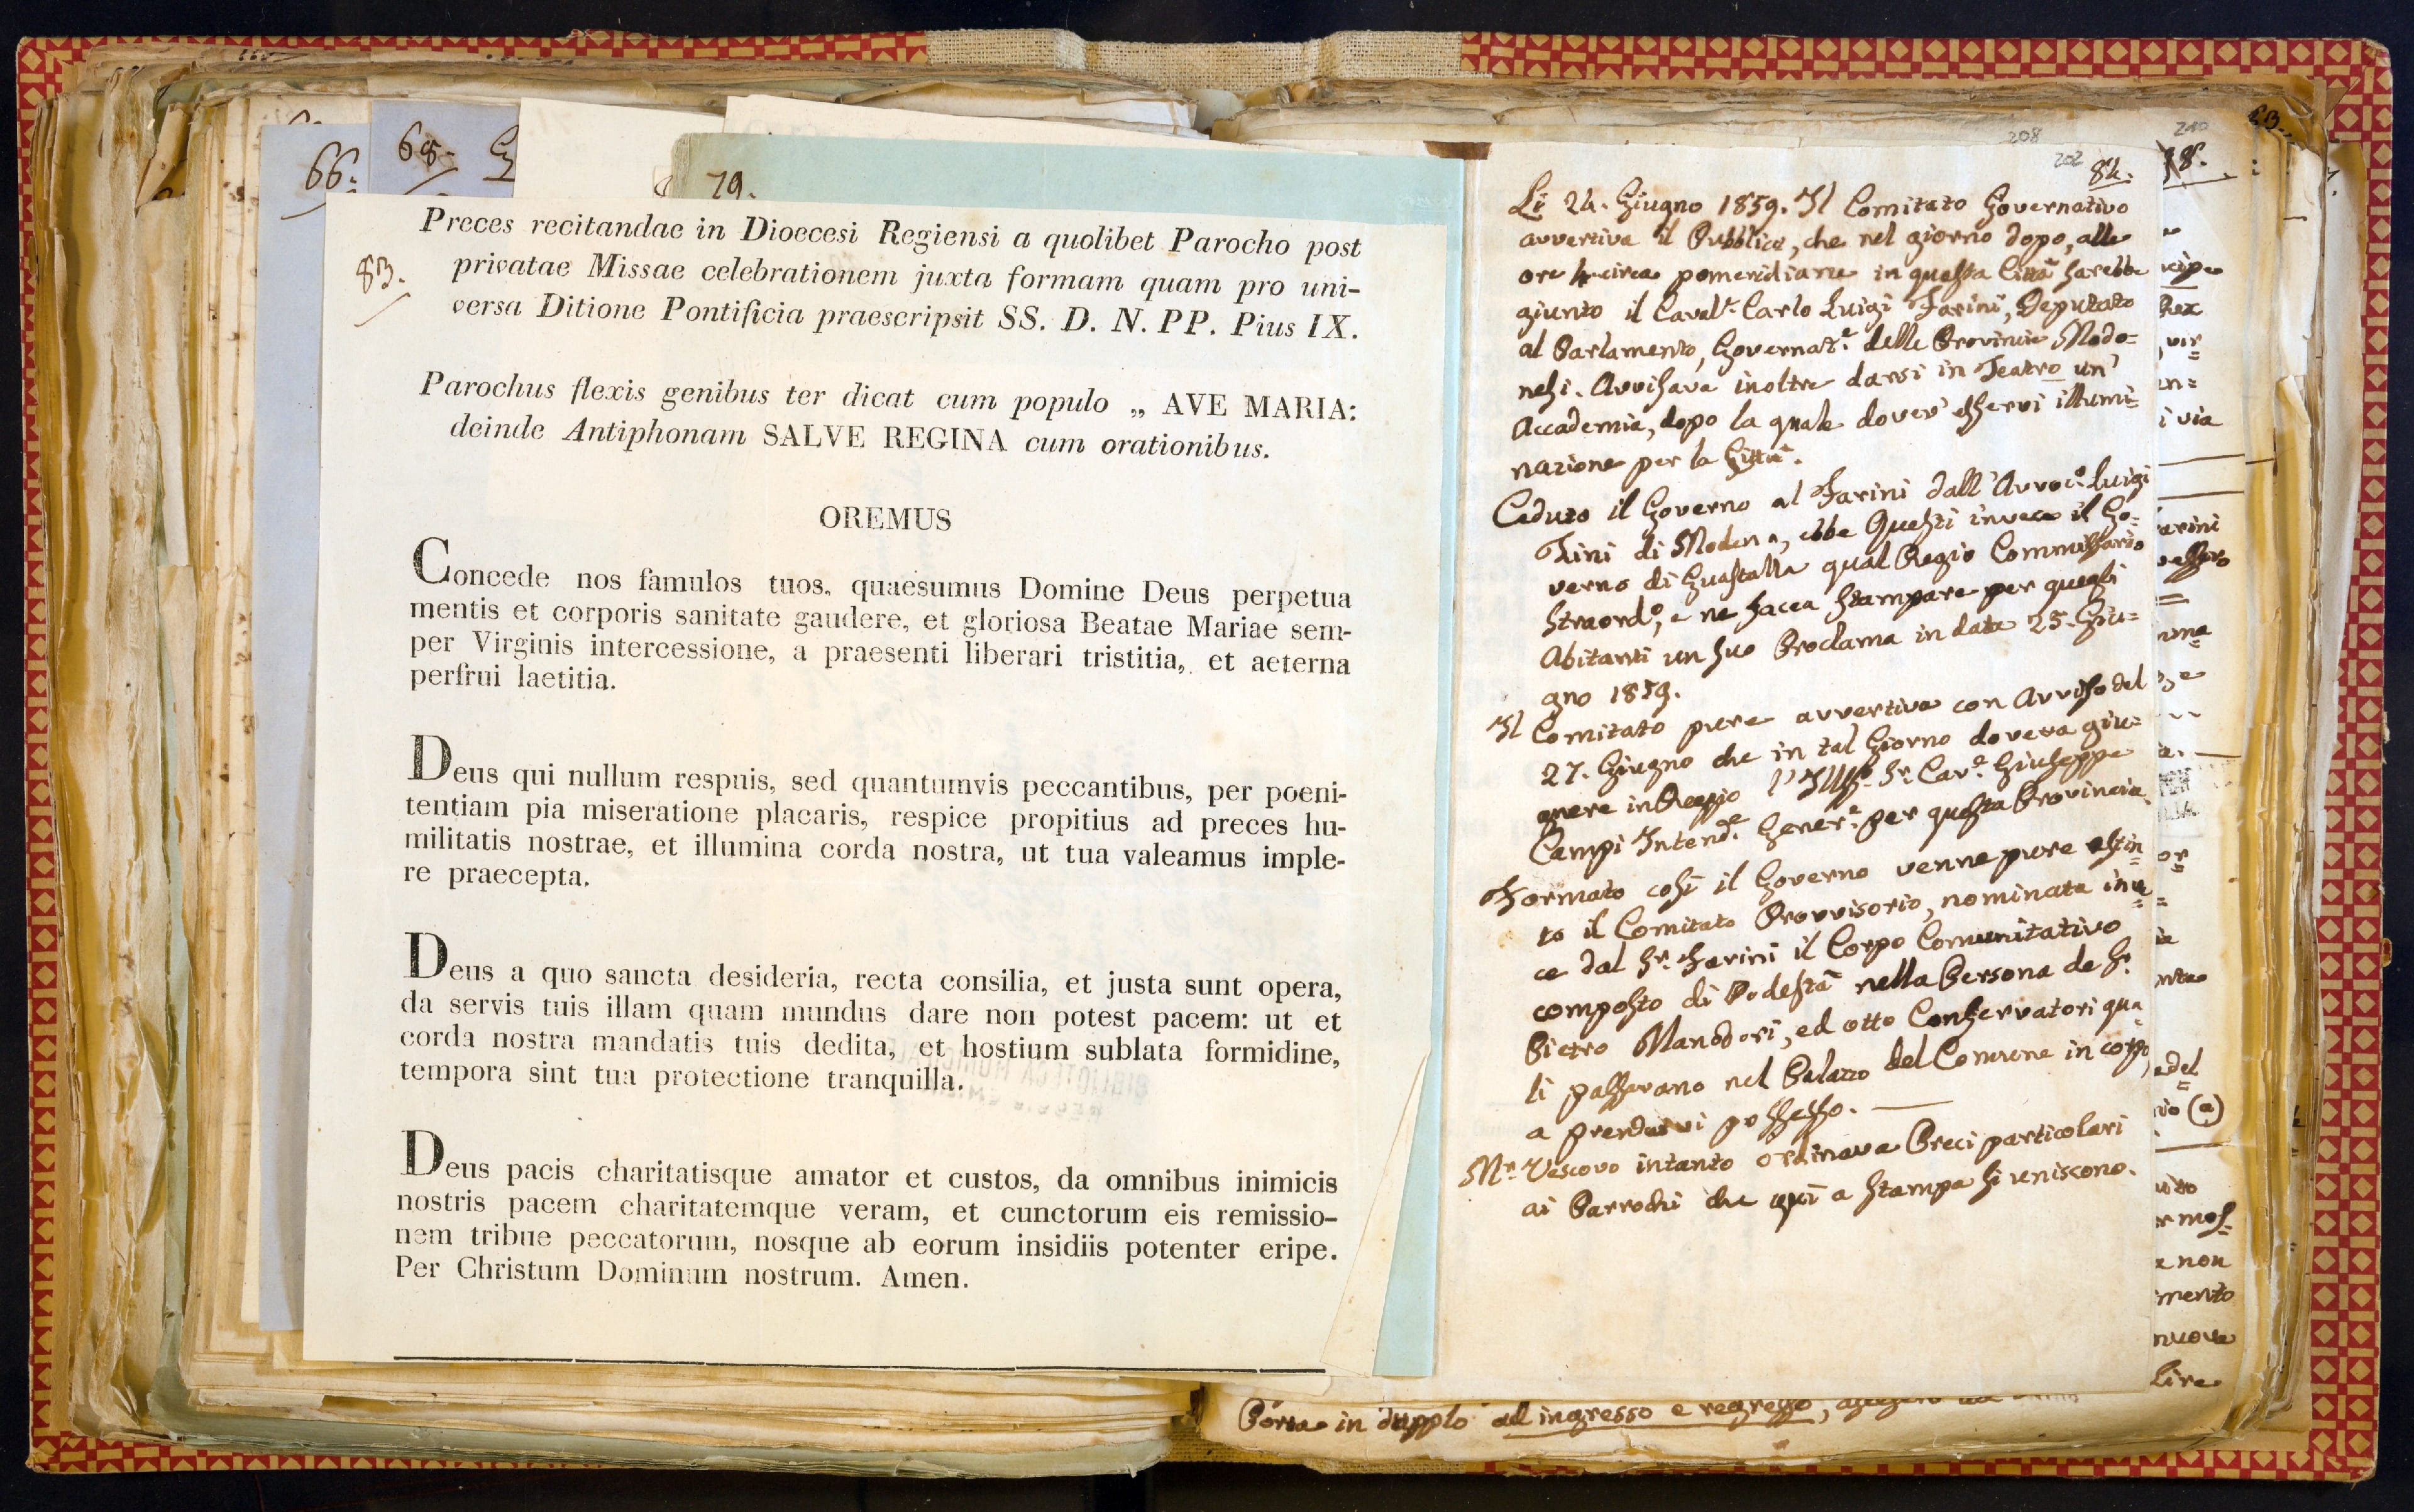 66.
68.
79.
83.
Preces recitandae in Dioecesi Regiensi a quolibet Parocho post
privatae Missae celebrationem juxta formam quam pro uni-
versa Ditione Pontificia praescripsit SS. D. N. PP. Pius IX.
Parochus flexis genibus ter dicat cum populo „ AVE MARIA:
deinde Antiphonam SALVE REGINA cum orationibus.
OREMUS
Concede nos famulos tuos, quaesumus Domine Deus perpetua
mentis et corporis sanitate gaudere, et gloriosa Beatae Mariae sem-
per Virginis intercessione, a praesenti liberari tristitia, et aeterna
perfrui laetitia.
Deus qui nullum respuis, sed quantumvis peccantibus, per poeni-
tentiam pia miseratione placaris, respice propitius ad preces hu-
militatis nostrae, et illumina corda nostra, ut tua valeamus imple-
re praecepta.
Deus a quo sancta desideria, recta consilia, et justa sunt opera,
da servis tuis illam quam mundus dare non potest pacem: ut et
corda nostra mandatis tuis dedita, et hostium sublata formidine,
tempora sint tua protectione tranquilla.
Deus pacis charitatisque amator et custos, da omnibus inimicis
nostris pacem charitatemque veram, et cunctorum eis remissio-
nem tribue peccatorum, nosque ab eorum insidiis potenter eripe.
Per Christum Dominum nostrum. Amen.
208
202
84.
Li 24. Giugno 1859. Il Comitato Governativo
avvertiva il Pubblico, che nel giorno dopo, alle
ore 4 circa pomeridiane in questa Città sarebbe
giunto il Cavalr. Carlo Luigi Farini, Deputato
al Parlamento, Governatre. delle Provincie Modo=
nesi. Avvisava inoltre darsi in Teatro un'
Accademia, dopo la quale dover esservi illumi=
nazione per la Città.
Ceduto il Governo al Farini dall'Avvoco. Luigi
Zini di Modena, ebbe Questi invece il Go=
verno di Guastalla qual Regio Commissario
Straordo., e ne facea stampare per quegli
Abitanti un suo Proclama in data 25. Giu=
gno 1859.
Il Comitato pure avvertiva con Avviso del
27. Giugno che in tal Giorno doveva giu=
gnere in Reggio l'Illmo. Sr. Cave. Giuseppe
Campi Intende. Genere. per questa Provincia.
Formato così il Governo venne pure estin=
to il Comitato Provvisorio, nominata inve=
ce dal Sr. Farini il Corpo Comunitativo
composto di Podestà nella Persona de Sr.
Pietro Manodori, ed otto Conservatori qua=
li passavano nel Palazzo del Comune in corpo
a prendervi possesso.
Mr. Vescovo intanto ordinava Preci particolari
ai Parrochi che qui a stampa si uniscono.
210
Porta in dupplo all'ingresso e regresso,